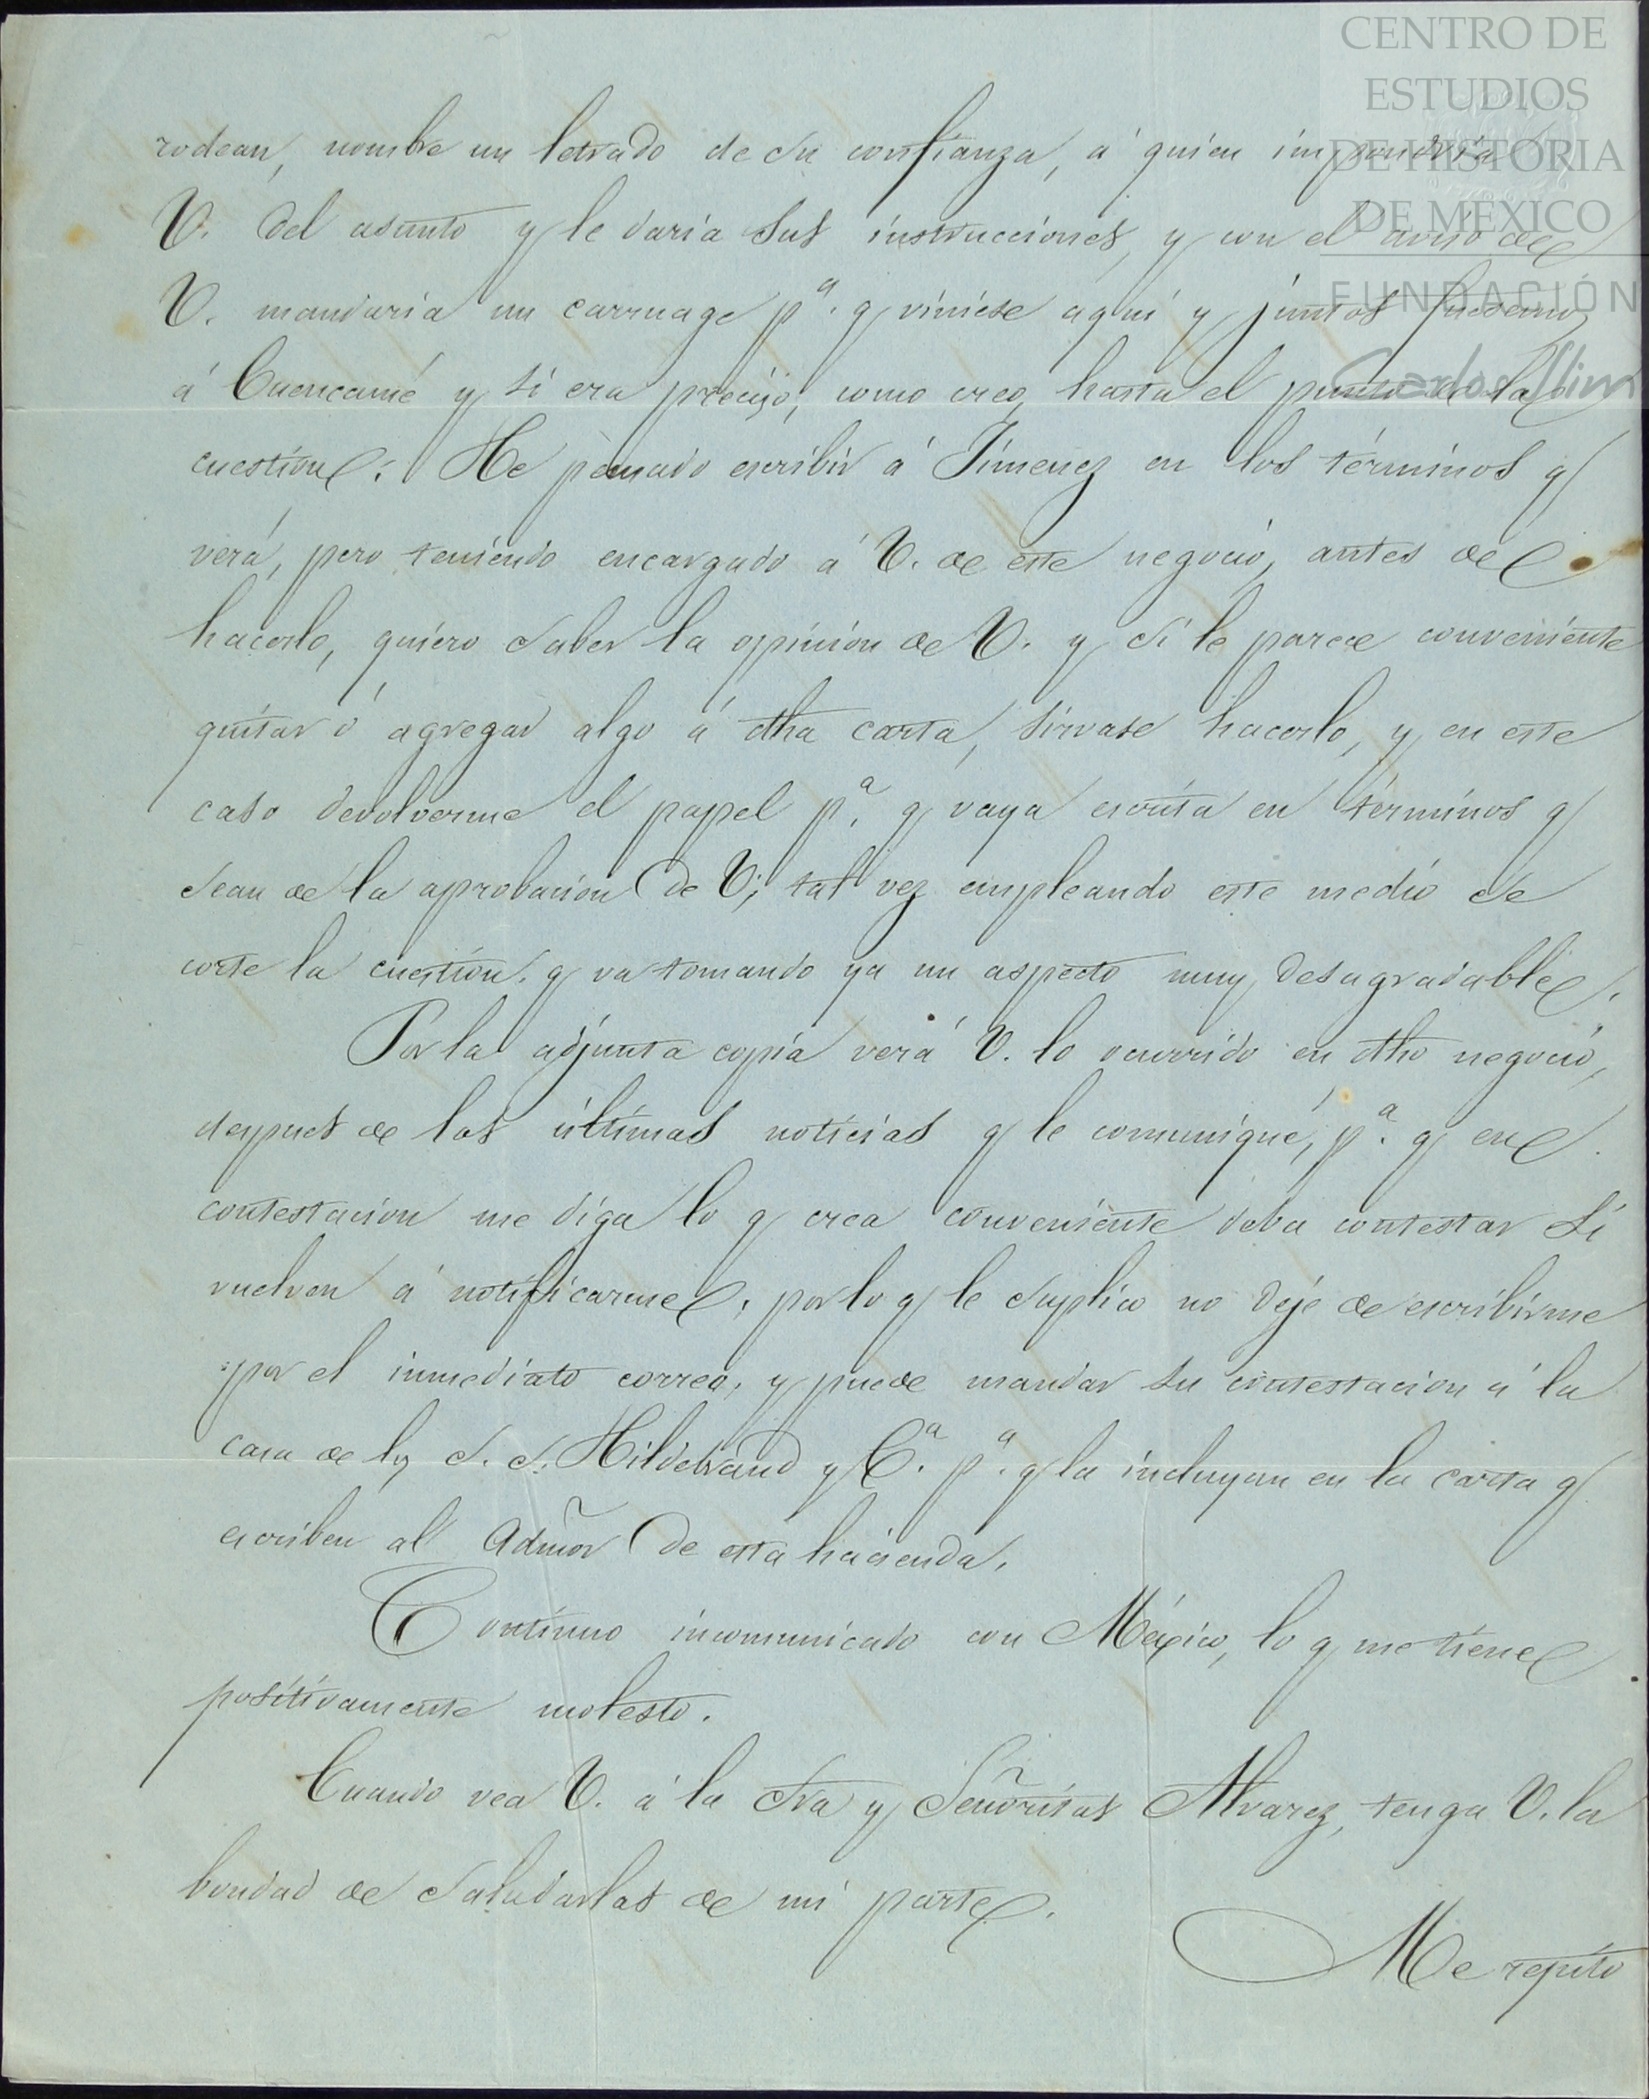 CENTRO DE
ESTUDIOS
DE HISTORIA
DE MÉXICO
FUNDACIÓN
Carlos Slim
rodean, nombre un letrado de su confianza, á quien impondria
V. del asunto y le daria sus instrucciones, y con el aviso de
V. mandaria un carruage pª. q viniese aqui y juntos fuesemos
á Cuencamé y si era preciso, como creo, hasta el punto de la
cuestion. He pensado escribir á Jimenez en los términos q
verá, pero teniendo encargado á V. de este negocio, antes de
hacerlo, quiero saber la opinion de V. y si le parece conveniente
quitar ó agregar algo á dha carta, sirvase hacerlo, y en este
caso devolverme el papel pª. q vaya escrita en términos q
sean de la aprobacion de V; tal vez empleando este medio se
corte la cuestion. q va tomando ya un aspecto muy desagradable.
Por la adjunta copia verá V. lo ocurrido en dho negocio,
despues de las últimas noticias q le comuniqué, pª. q en
contestacion me diga lo q crea conveniente deba contestar si
vuelven á notificarme, por lo q le suplico no deje de escribirme
por el inmediato correo, y puede mandar su contestacion á la
casa de los S. S. Hildebrand y Cª. pª. q la incluyan en la carta q
escriben al Admõr de esta hacienda.
Continuo incomunicado con México, lo q me tiene
positivamente molesto.
Cuando vea V. á la Sra y Señoritas Alvarez, tenga V. la
bondad de saludarlas de mi parte.
Me repito